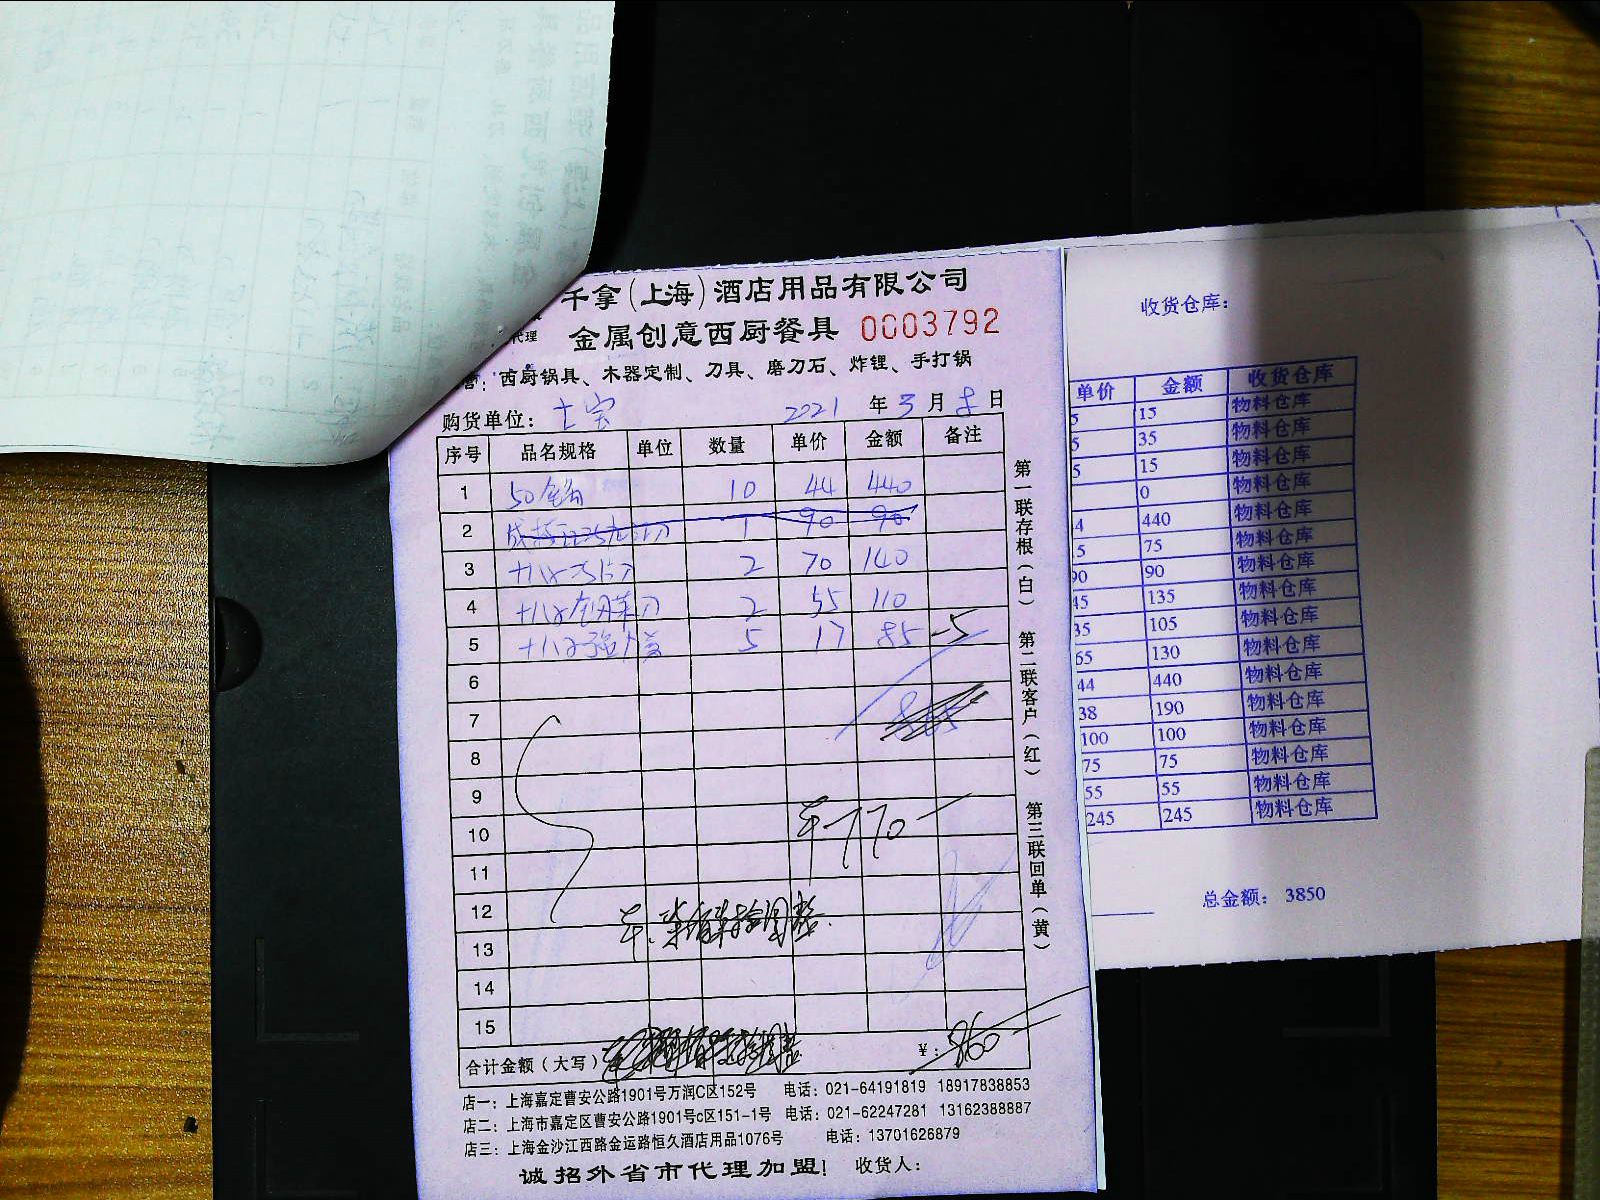 千拿(上海)酒店用品有限公司
代理 金属创意西厨餐具 0003792
营：西厨锅具、木器定制、刀具、磨刀石、炸锂、手打锅
购货单位： 2021 年 3 月 8 日
序号 品名规格 单位 数量 单价 金额 备注
1 50 10 44 440
2 1 90 90
3 十八子 2 70 140
4 十八子 2 55 110
5 十八子 5 17 85 -5
6
7 865
8
9
10 770
11
12
13
14
15
合计金额（大写） ¥: 860
店一：上海嘉定曹安公路1901号万润C区152号 电话：021-64191819 18917838853
店二：上海市嘉定区曹安公路1901号c区151-1号 电话：021-62247281 13162388887
店三：上海金沙江西路金运路恒久酒店用品1076号 电话：13701626879
诚招外省市代理加盟！ 收货人：
第一联存根（白） 第二联客户（红） 第三联回单（黄）
收货仓库:
单价 金额 收货仓库
5 15 物料仓库
5 35 物料仓库
5 15 物料仓库
0 物料仓库
4 440 物料仓库
5 75 物料仓库
90 90 物料仓库
45 135 物料仓库
35 105 物料仓库
65 130 物料仓库
44 440 物料仓库
38 190 物料仓库
100 100 物料仓库
75 75 物料仓库
55 55 物料仓库
245 245 物料仓库
总金额: 3850